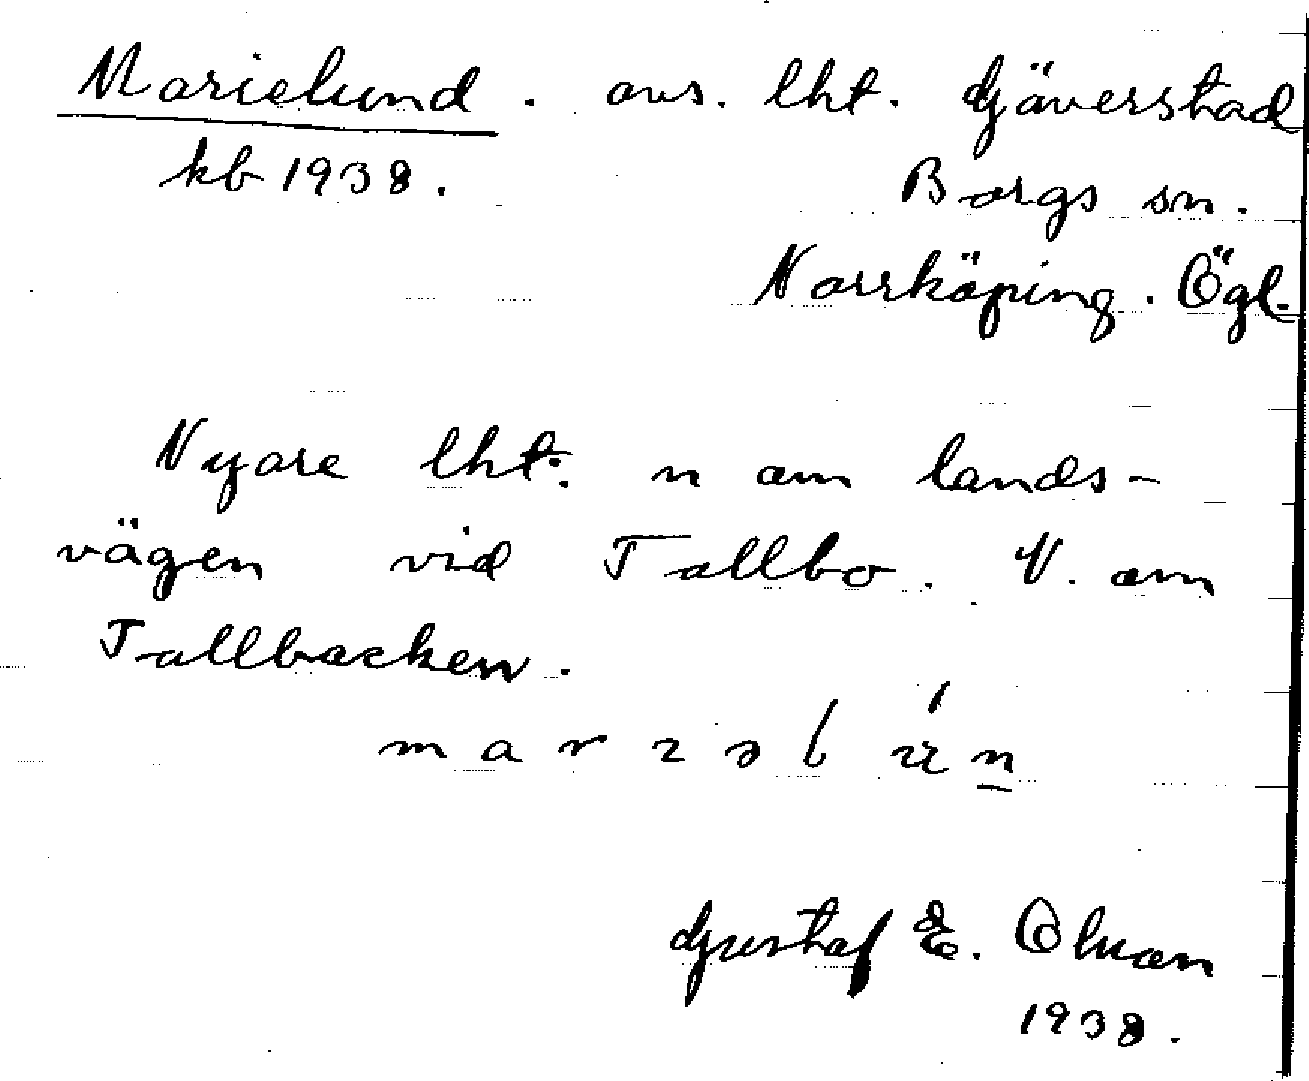 Marielund. avs. lht. Gjäverstad
kb 1938. Borgs sn.
Norrköping. Ögl.
Nyare lht. n om lands-
vägen vid Tallbo. V. om
Tallbacken.
Gustaf E. Olson
1938.